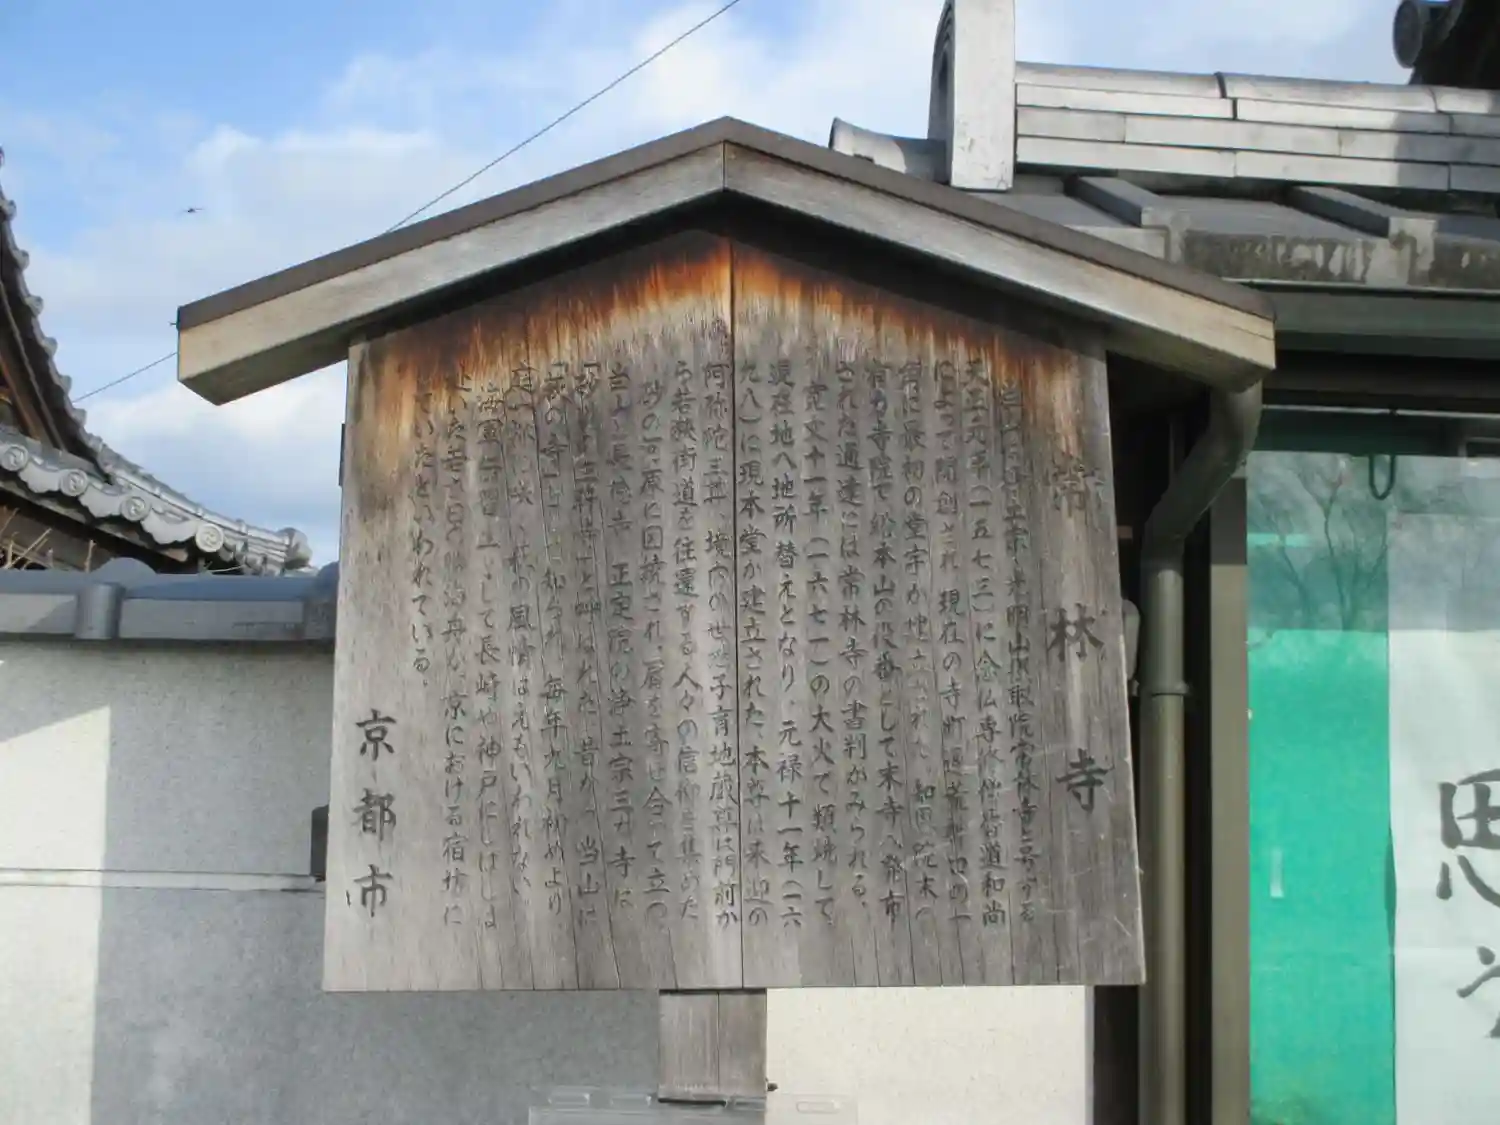 常林寺
当寺は浄土宗光明山摂取院常林寺と号する
天正元年(一五七三)に念仏専修僧
によって開創され、現在の寺町通荒神口の
に最初の堂宇が建立された。知恩院末の
有力寺院で総本山の役番として末寺へ発布
された通達には常林寺の書判がみられる。
寛文十一年(一六七一)の大火で類焼して、
現在地へ地所替えとなり、元禄十一年(一六
九八)に現本堂が建立された。本尊は来迎の
阿弥陀三尊、境内の世継子育地蔵尊は門前か
ら若狭街道を往還する人々の信仰を集めた
砂の河原に囲続され、肩を寄せ合って立つ
当山と長徳寺、正定院の浄土宗三ケ寺は
「砂川の三軒寺」と呼ばれた昔から、当山は
「萩の寺」として知られ、毎年九月初めより
庭一杯に咲く萩の風情はえもいわれない。
海軍伝習生として長崎や神戸にしばしば
いた若き日の勝海舟が、京における宿坊に
していたといわれている。
京都市
思